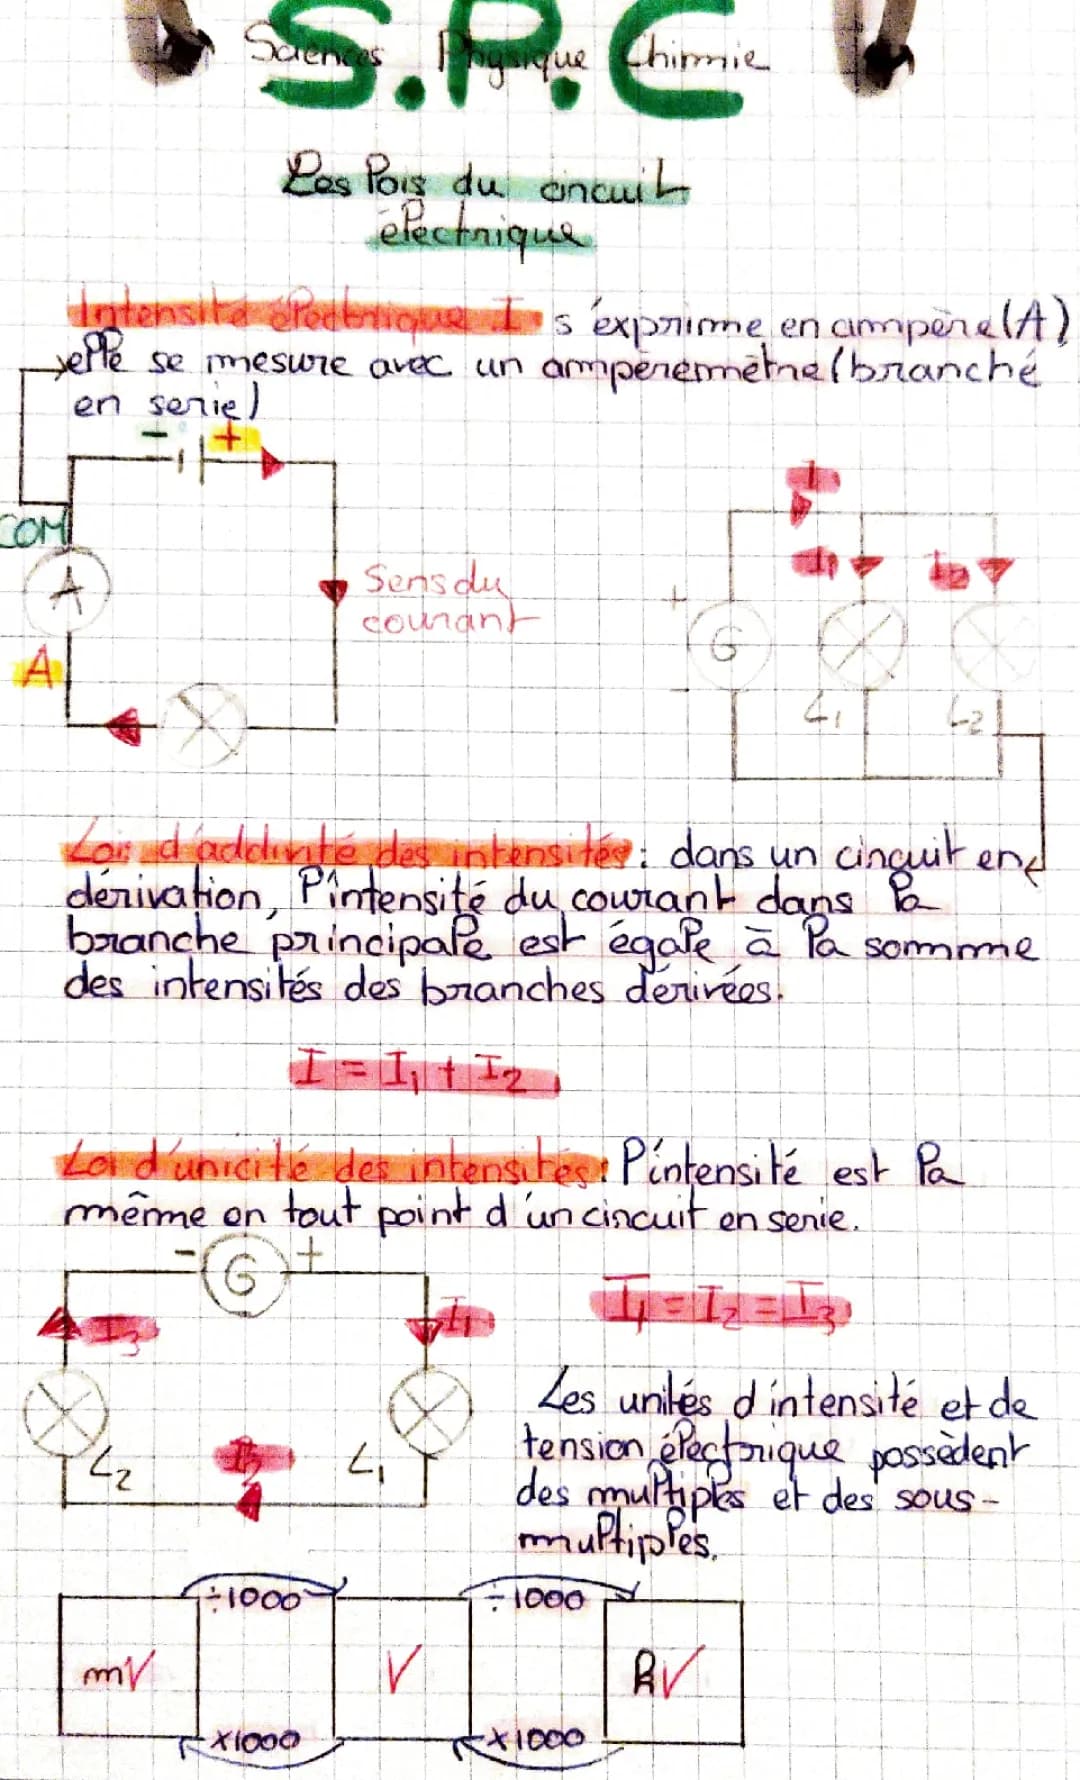 S.P.C
Sciences Physique Chimie
Les lois du circuit
électrique
Intensité électrique I s'exprime en ampère (A)
elle se mesure avec un ampèremètre (branché
en serie)
- +
COM
A
A
Sens du
courant
I
I1 I2
+
G
-
L1 L2
Loi d'addivité des intensités : dans un circuit en
dérivation, l'intensité du courant dans la
branche principale est égale à la somme
des intensités des branches dérivées.
I = I1 + I2
Loi d'unicité des intensités : l'intensité est la
même en tout point d'un circuit en serie.
- G +
I3 I1
I1 = I2 = I3
L2 I2 L1
Les unités d'intensité et de
tension électrique possèdent
des multiples et des sous-
multiples.
÷1000 ÷1000
mV V kV
×1000 ×1000